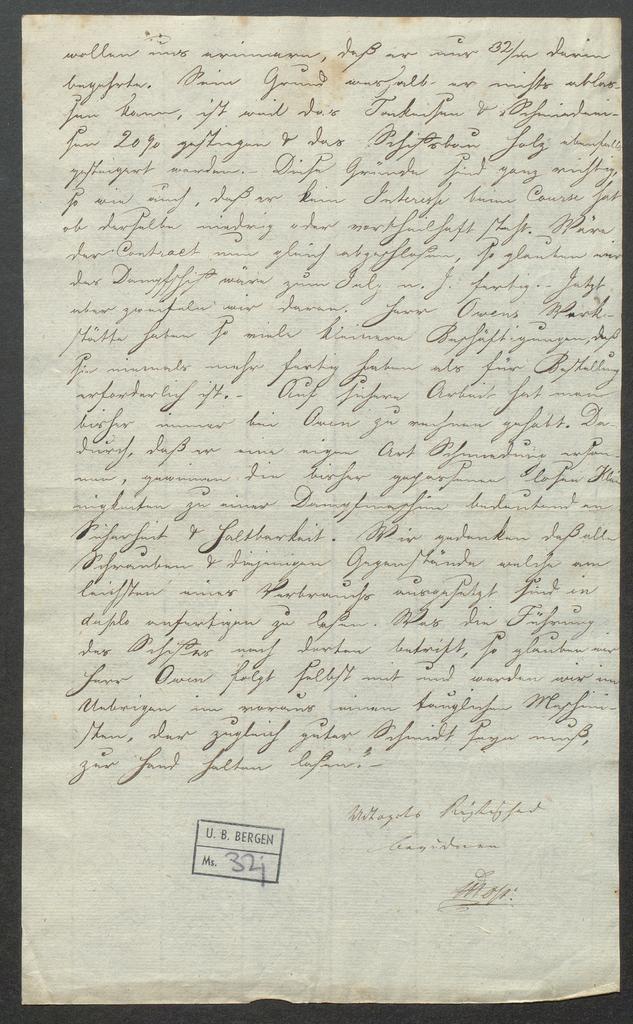 wollen uns erinnern, daß er nur 32/m darin
begehrte. Sein Grund weshalb er nichts ablas-
sen kann, ist weil das & Schmiedeei-
sen 20% gestiegen & das Schiffsbau Holz ebenfalls
gesteigert worden. – Diese Gründe sind ganz richtig,
so wie auch, daß er kein Interesse beim Course hat
ob derselbe niedrig oder vortheilhaft steht. Wäre
der Contract nun gleich abgeschlossen, so glauben wir
das Dampfschiff wäre zum July n. J. fertig. – Jetzt
aber zweifeln wir daran. Herr Owens Werk-
stätte haben so viele kleinere Beschäftigungen, daß
sie niemals mehr fertig haben als für Bestellung
erforderlich ist. – Auf sichere Arbeit hat man
bisher immer bei Owen zu rechnen gehabt. Da-
durch, daß er eine eigen Art Schmiedung erson-
nen, gewinnen die bisher gegossenen losen Klei-
nigkeiten zu einer Dampfmaschine bedeutend an
Sicherheit & Haltbarkeit. Wir gedenken daß alle
Schrauben & diejenigen Gegenstände welche am
leichsten eines Verbrauchs ausgesetzt sind in
duplo anfertigen zu lassen. Was die Führung
des Schiffes nach dorten betrift, so glauben wir
Herr Owen folgt selbst mit und werden wir im
Uebrigen im voraus einen tauglichen Maschini-
sten, der zugleich guter Schmidt seyn muß,
zur Hand halten lassen." –
Udtogets Rigtighed
bevidner
U. B. BERGEN
Ms. 32j